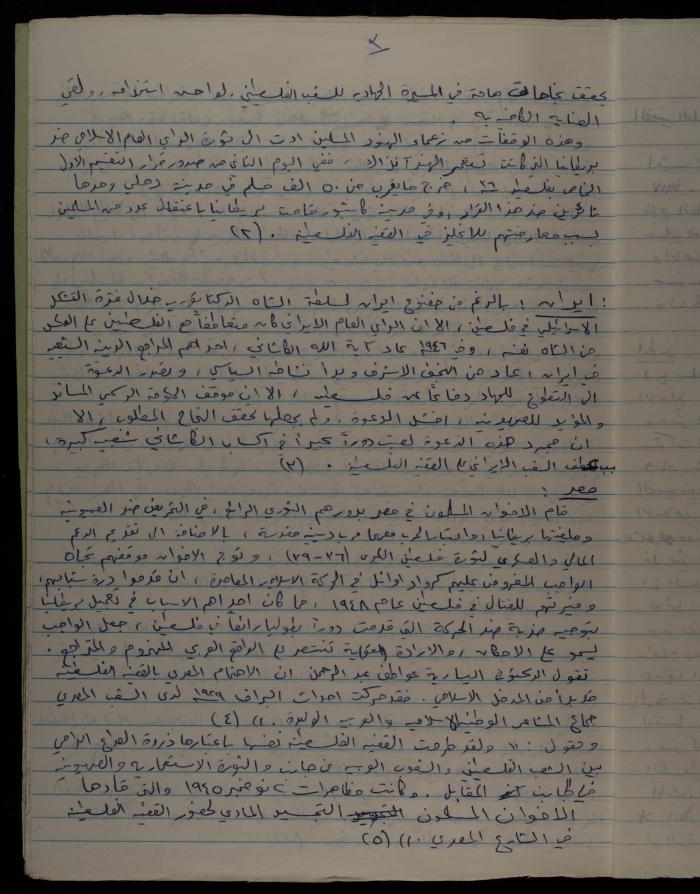 ٣
يحقق نجاحات هامة في المسيرة الجهادية للشعب الفلسطيني لو احسن استغلاله، ولقي
العناية الكافية به.
وهذه الوقفات من زعماء الهنود المسلمين ادت الى ثورة الرأي العام الاسلامي ضد
بريطانيا التي كانت تستعمر الهند آنذاك، ففي اليوم الثاني من صدور قرار التقسيم الأول
الخاص بفلسطين ٣٦، خرج ما يقرب من ٥٠ الف مسلم في مدينة دهلي وحدها
ثائرين ضد هذا القرار، وفي مدينة قامت بريطانيا باعتقال عدد من المسلمين
بسبب معارضتهم للانجليز في القضية الفلسطينية. (٢)
ايران: بالرغم من خضوع ايران لسلطة الشاه الدكتاتورية خلال فترة التشكل
الاسرائيلي في فلسطين، الا ان الرأي العام الايراني كان متعاطفاً مع الفلسطينيين على العكس
من الشاه نفسه، وفي ١٩٤٦ عاد آية الله الكاشاني، احد اهم المراجع الدينية الشيعية
في ايران، عاد من النجف الاشرف وبدأ نشاطه السياسي، وبصدور الدعوة
الى التطوع للجهاد دفاعاً عن فلسطين، الا ان موقف الحكومة الرسمي المساند
والمؤيد للصهيونية، افشل الدعوة، ولم يجعلها تحقق النجاح المطلوب، الا
ان مجرد هذه الدعوة لعبت دوراً كبيراً في اكساب الكاشاني شعبية كبيرة،
بسبب عطف الشعب الايراني على القضية الفلسطينية. (٣)
مصر:
قام الاخوان المسلمون في مصر بدورهم الثوري الرائع، في التحريض ضد الصهيونية
وحليفتها بريطانيا، واعتبار الحرب معهما حرباً دينية مقدسة، بالاضافة الى تقديم الدعم
المالي والعسكري لثورة فلسطين الكبرى (٣٦-٣٩)، وتوج الاخوان موقفهم تجاه
الواجب المفروض عليهم كرواد اوائل في الحركة الاسلامية المعاصرة، ان قدموا درة شبابهم،
وخيرتهم للقتال في فلسطين عام ١٩٤٨، مما كان احد اهم الاسباب في تعجيل بريطانيا
بتوجيه ضربة ضد الحركة التي قدمت دوراً بطولياً رائعاً في فلسطين، جعل الواجب
يسمو على الامكان، والارادة تنتصر على الواقع العربي المهزوم والمتراجع.
تقول الدكتورة اليسارية عواطف عبد الرحمن ان الاهتمام المصري بالقضية الفلسطينية
قد بدأ من المدخل الاسلامي. فقد حركت احداث البراق ١٩٢٩ لدى الشعب المصري
جماع المشاعر الوطنية الاسلامية والعربية الوليدة.)) (٤)
وتقول: (( ولقد طرحت القضية الفلسطينية نفسها باعتبارها ذروة الصراع الدامي
بين الشعب الفلسطيني والشعوب العربية من جانب والثورة الاستعمارية والصهيونية
في الجانب المقابل. وكانت مظاهرات ٢ نوفمبر ١٩٤٥ والتي قادها
الاخوان المسلمون التجسيد المادي لحضور القضية الفلسطينية
في الشارع المصري.)) (٥)